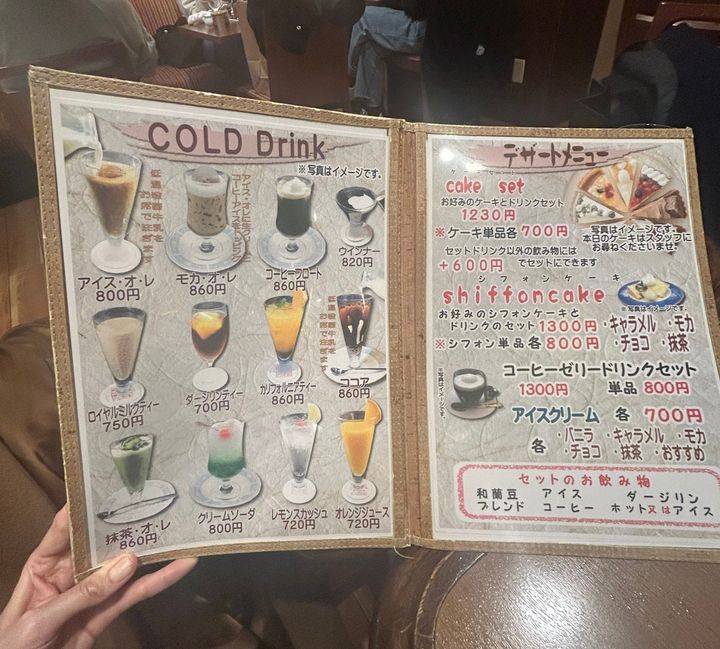 COLD Drink
※写真はイメージです。
低温殺菌牛乳を
お席で注ぎます
アイス・オ・レ
800円
アイス・オ・レに生クリームと
モカ・オ・レ
860円
コーヒーフロート
860円
ウインナー
820円
ロイヤルミルクティー
750円
ダージリンティー
700円
カリフォルニアティー
860円
低温殺菌牛乳を
お席で注ぎます
ココア
860円
抹茶・オ・レ
860円
クリームソーダ
800円
レモンスカッシュ
720円
オレンジジュース
720円
デザートメニュー
cake set
お好みのケーキとドリンクセット
1230円
※ケーキ単品各700円
写真はイメージです。
本日のケーキはスタッフに
お尋ねくださいませ。
セットドリンク以外の飲み物には
+600円でセットにできます
シフォンケーキ
shiffoncake
※写真はイメージです。
お好みのシフォンケーキと
ドリンクのセット 1300円
※シフォン単品各800円
・キャラメル ・モカ
・チョコ ・抹茶
※写真はイメージです。
コーヒーゼリードリンクセット
1300円 単品 800円
アイスクリーム 各 700円
各 ・バニラ ・キャラメル ・モカ
・チョコ ・抹茶 ・おすすめ
セットのお飲み物
和蘭豆 アイス ダージリン
ブレンド コーヒー ホット又はアイス